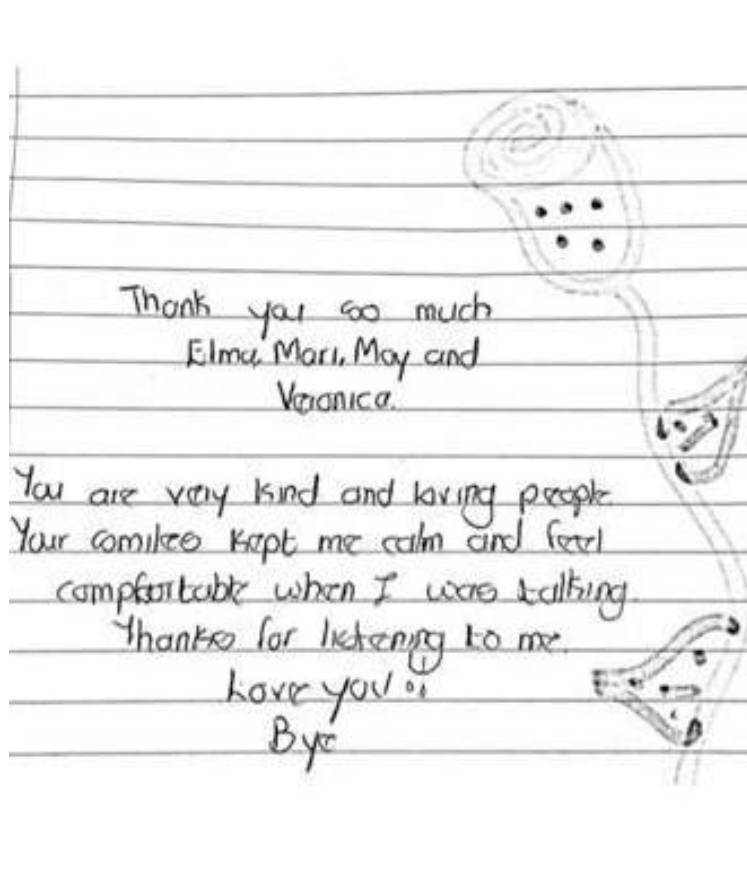 Thank you soo much
Elma, Mari, May and
Veronica.
You are very kind and loving people
Your smiles kept me calm and feel
compfortable when I was talking.
Thanks for listening to me.
Love you
Bye